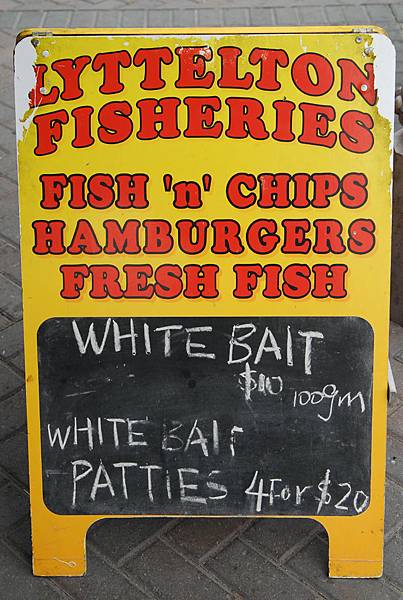 LYTTELTON
FISHERIES
FISH 'n' CHIPS
HAMBURGERS
FRESH FISH
WHITE BAIT
$10 100gm
WHITE BAIT
PATTIES 4 For $20